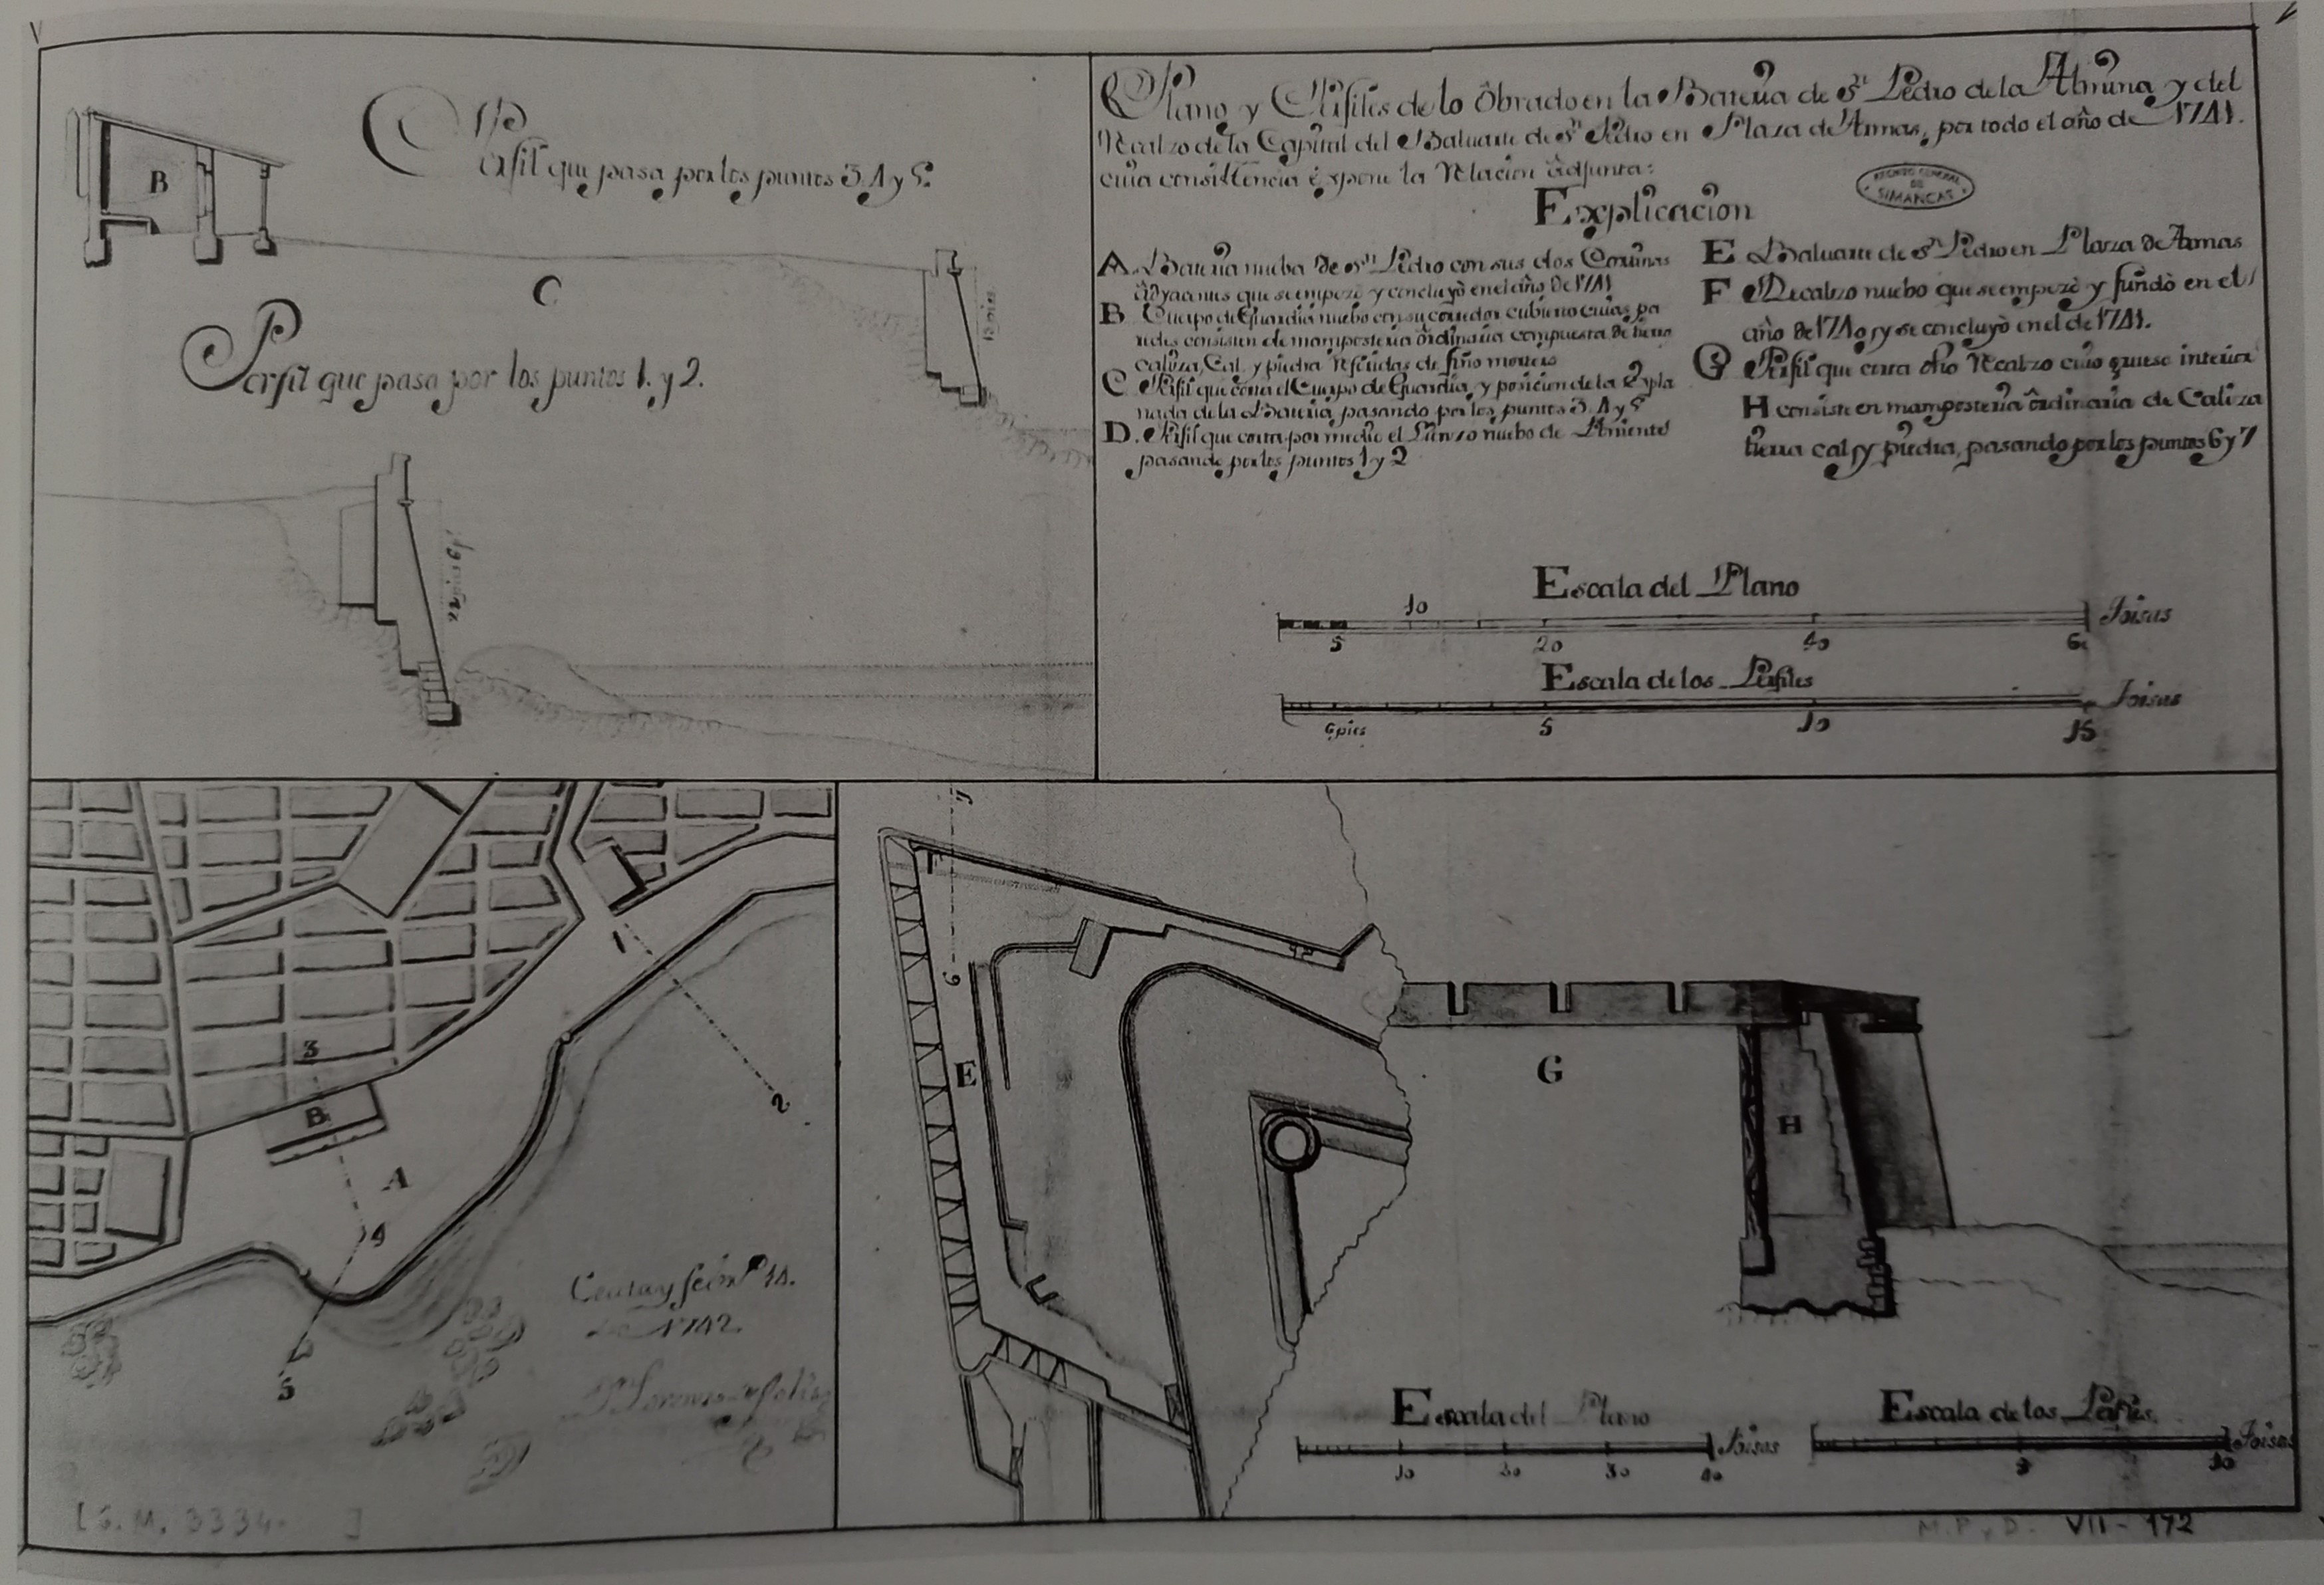 Perfil que pasa por los puntos 3. 4 y 5.
B
C
Perfil que pasa por los puntos 1. y 2.
Plano y Perfiles de lo Obrado en la Bateria de Sn. Pedro de la Almina y del
Recalzo de la Capital del Baluarte de Sn. Pedro en Plaza de Armas, por todo el año de 1741.
cuia consistencia expone la Relacion adjunta:
ARCHIVO GENERAL
DE
SIMANCAS
Explicacion
A. Bateria nueba de Sn. Pedro con sus dos Cortinas
Adyacentes que se empezò y concluyò en el año De 1741
B Cuerpo de Guardia nuebo con su corredor cubierto cuias pa
redes consisten de mamposteria ôrdinaria compuesta De tierra
caliza, Cal, y piedra
C Perfil que corta el Cuerpo de Guardia, y posicion de la Expla
nada de la Bateria pasando por los puntos 3. 4 y 5
D. Perfil que corta por medio el Lienzo nuebo de
pasando por los puntos 1 y 2
E Baluarte de Sn. Pedro en Plaza De Armas
F Recalzo nuebo que se empezò y fundò en el
año De 1740, y se concluyò en el de 1741.
G Perfil que corta dho Recalzo cuio grueso interior
H consiste en mamposteria ôrdinaria de Caliza
tierra cal, y piedra, pasando por los puntos 6 y 7
Escala del Plano
10
5 20 40 60 Toisas
Escala de los Perfiles
6 pies 5 10 15 Toisas
1
2
3
B
A
4
5
Ceuta y 14.
de 1742
Dn. Lorenzo de Solis
[G.M. 3334- ]
7
F
6
E
G
H
Escala del Plano
10 20 30 40 Toisas
Escala de los Perfiles
5 10 Toisas
M. P. y D. VII - 172